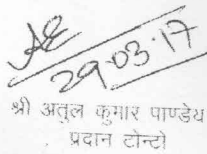 29.03.17
श्री अतुल कुमार पाण्डेय
प्रदान टोन्टो